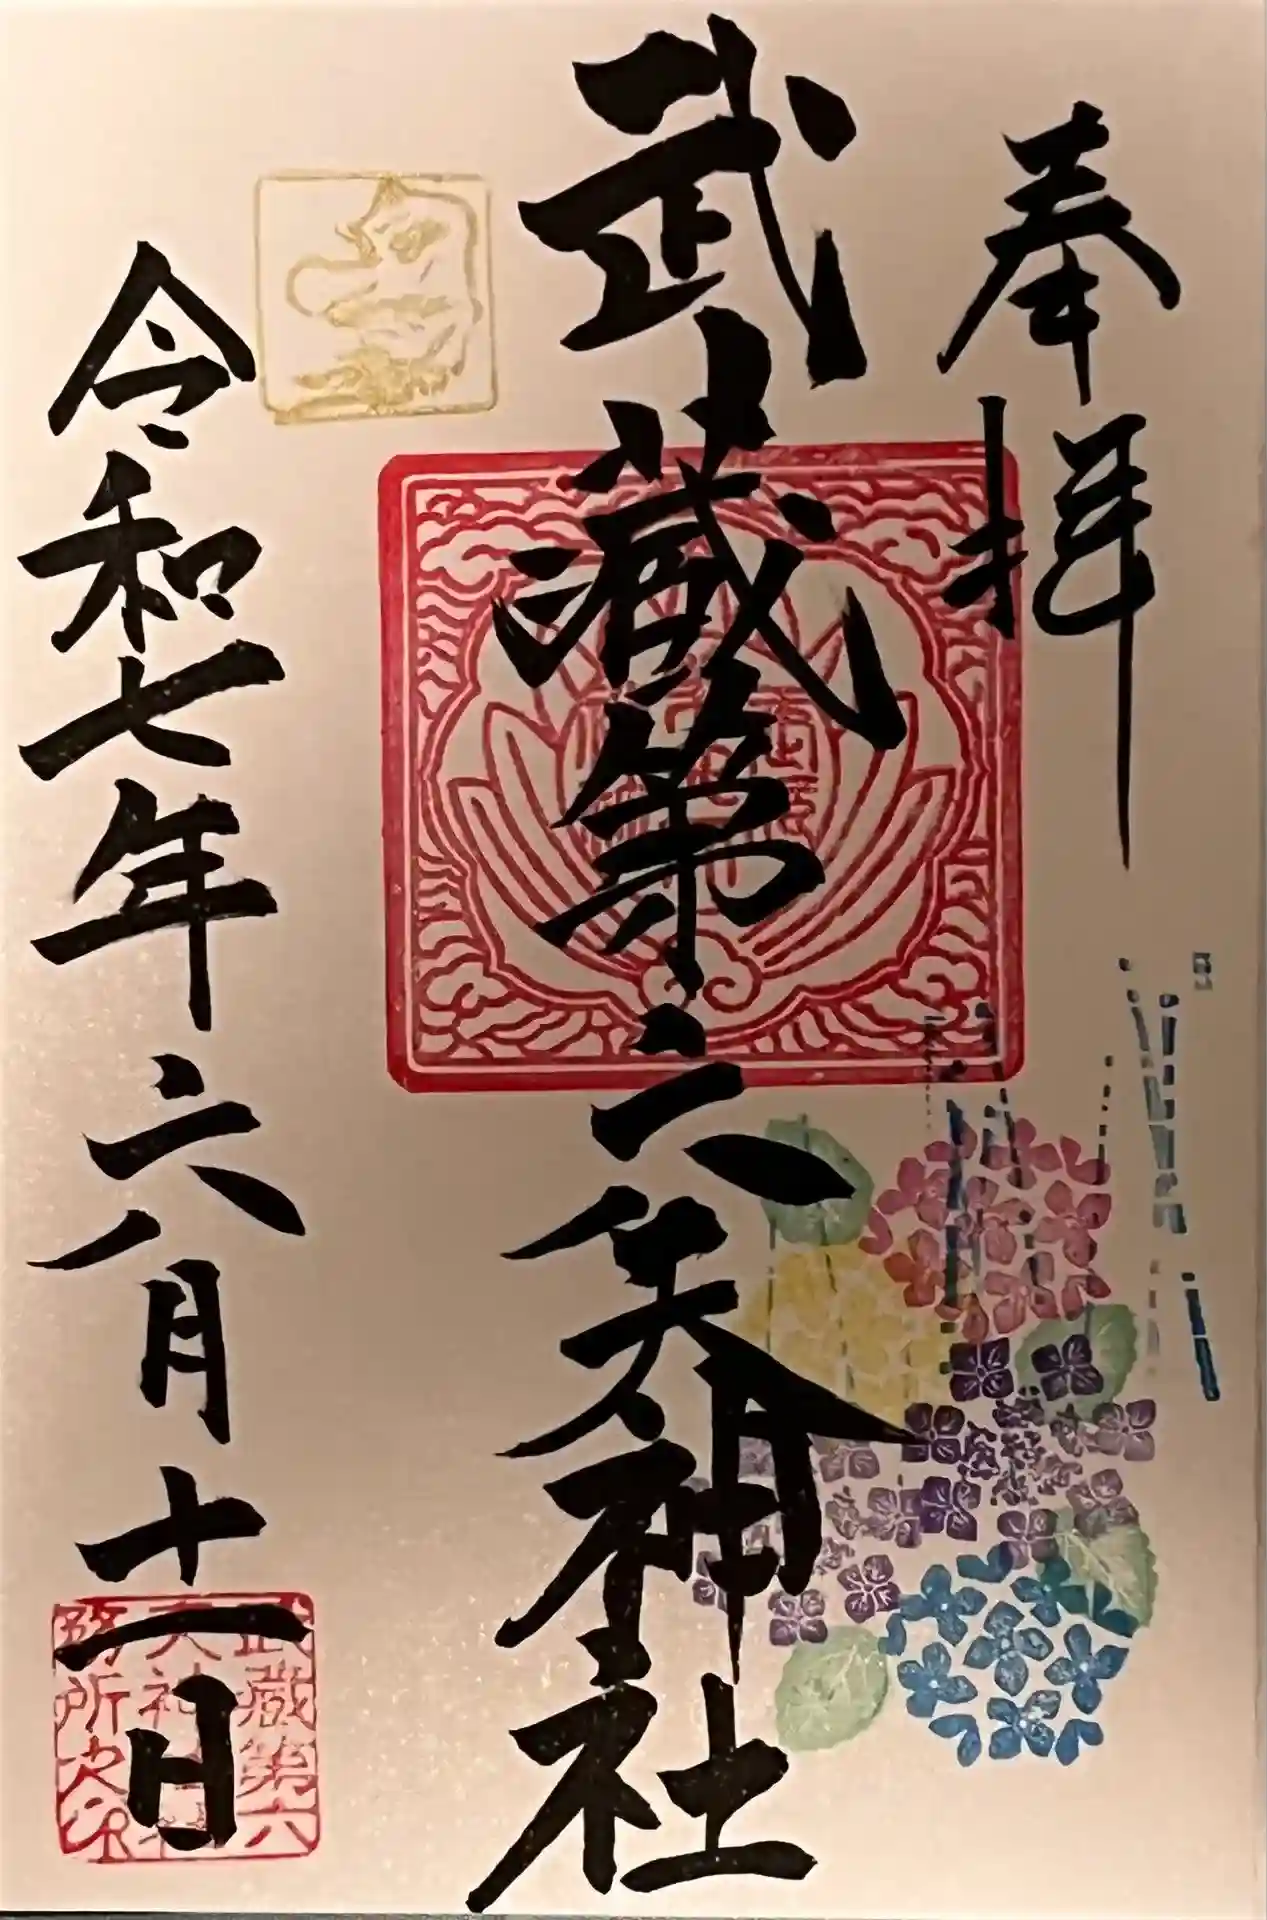 奉拝
武蔵第六天神社
令和七年六月十一日
武蔵第六
天神社
務所之印